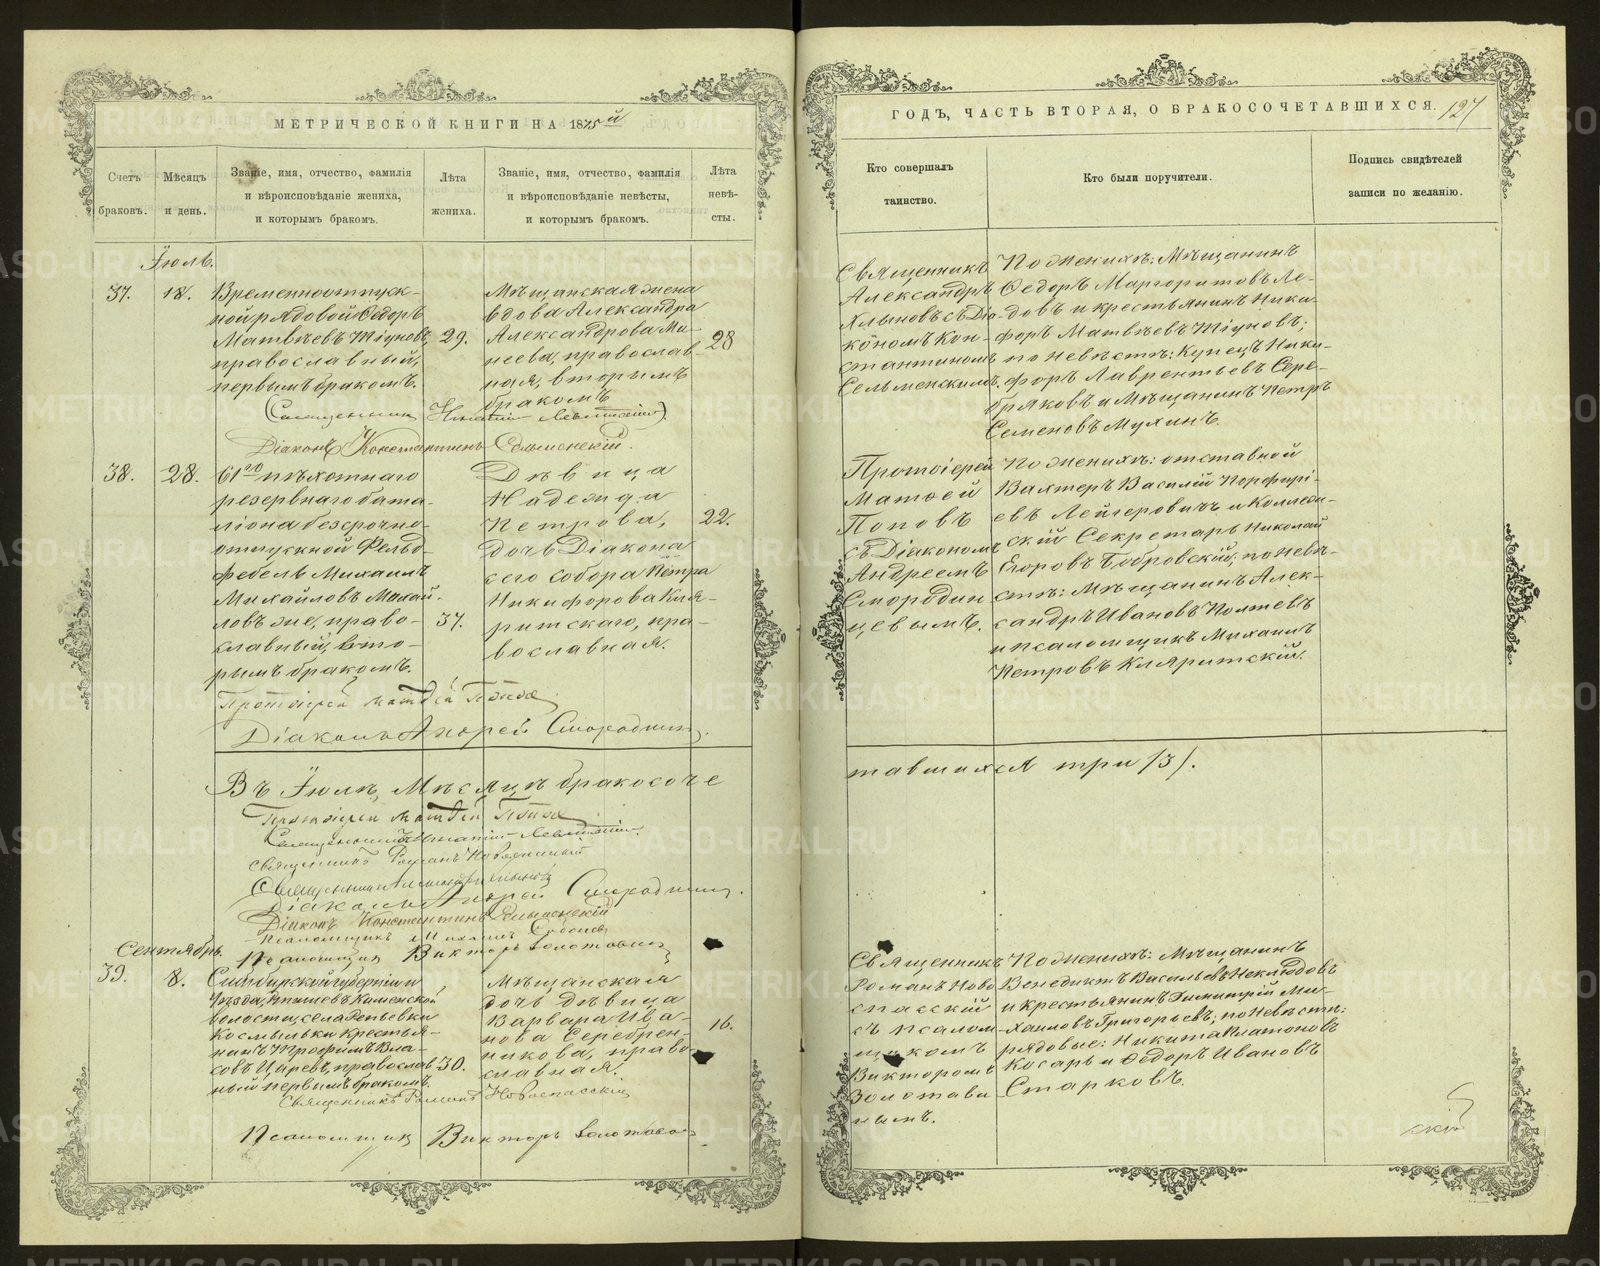 МЕТРИЧЕСКОЙ КНИГИ НА 1875й
Счетъ браковъ.
Мѣсяцъ и день.
Званіе, имя, отчество, фамилія
и вѣроисповѣданіе жениха,
и которымъ бракомъ.
Лѣта жениха.
Званіе, имя, отчество, фамилія
и вѣроисповѣданіе невѣсты,
и которымъ бракомъ.
Лѣта невѣ-
сты.
Іюль.
37.
18.
Временноотпуск-
ной рядовой Ѳедоръ
Матвѣевъ Тіуновъ,
православный,
первымъ бракомъ.
29.
Мѣщанская жена
вдова Александра
Александрова Ми-
неева, православ-
ная, вторымъ
бракомъ
28
(Священникъ Игнатій Левитскій)
Діаконъ Константинъ Сельменскій.
38.
28.
61го пѣхотнаго
резервнаго бата-
ліона безсрочно-
отпускной Фельд-
фебель Михаилъ
Михайловъ
же, право-
славный, вто-
рымъ бракомъ.
37.
Дѣвица
Надежда
Петрова,
дочь Діакона
сего собора Петра
Никифорова Кля-
ритскаго, пра-
вославная.
22.
Протоіерей Матѳей Попов
Діаконъ Андрей Смородинц.
Въ Іюлѣ Мѣсяцѣ бракосоче
Протоіерей Матѳей Попов
Священникъ Игнатій Левитскій
Священникъ Романъ Новоспасскій
Священникъ Александръ Хлыновъ
Діаконъ Андрей Смородинц.
Діаконъ Константинъ Сельменскій
Псаломщикъ Михаилъ
Псаломщикъ Викторъ Золотавин
Сентябрь.
39.
8.
Симбирской губерніи и
Уѣзда,
волости, села Репьевки
Космынки крестья-
нинъ Трофимъ Вла-
совъ Царевъ, православ-
ный первымъ бракомъ.
30.
Мѣщанская
дочь дѣвица
Варвара Ива-
нова Серебрен-
никова, право-
славная.
16.
Священникъ Романъ Новоспасскій
Псаломщикъ Викторъ Золотавин
ГОДЪ, ЧАСТЬ ВТОРАЯ, О БРАКОСОЧЕТАВШИХСЯ.
127
Кто совершалъ
таинство.
Кто были поручители.
Подпись свидѣтелей
записи по желанію.
Священникъ
Александръ
Хлыновъ съ Діа-
кономъ Кон-
стантиномъ
Сельменскимъ.
По женихѣ: Мѣщанинъ
Ѳедоръ Маргоритовъ Ле-
довъ и крестьянинъ Ники-
форъ Матвѣевъ Тіуновъ;
по невѣстѣ: Купецъ Ники-
форъ Лаврентьевъ Сере-
бряковъ и Мѣщанинъ Петръ
Семеновъ Мухинъ.
Протоіерей
Матѳей
Поповъ
съ Діакономъ
Андреемъ
Смородин
цевымъ.
По женихѣ: отставной
Вахтеръ Василій Порфирі-
евъ Лейгеровичъ и Коллеж-
скій Секретарь Николай
Егоровъ Бобровскій; по невѣ-
стѣ: Мѣщанинъ Алек-
сандръ Ивановъ Полтевъ
и псаломщикъ Михаилъ
Петровъ Кляритскій.
тавшихся три /3/.
Священникъ
Романъ Ново
спасскій
съ псалом-
щикомъ
Викторомъ
Золотави
нымъ.
По женихѣ: Мѣщанинъ
Венедиктъ Васильевъ Неклюдовъ
и крестьянинъ Димитрій Ми-
хаиловъ Григорьевъ; по невѣстѣ:
рядовые: Никита Платоновъ
Косарь и Ѳедоръ Ивановъ
Старковъ.
скій
METRIKI.GASO-URAL.RU